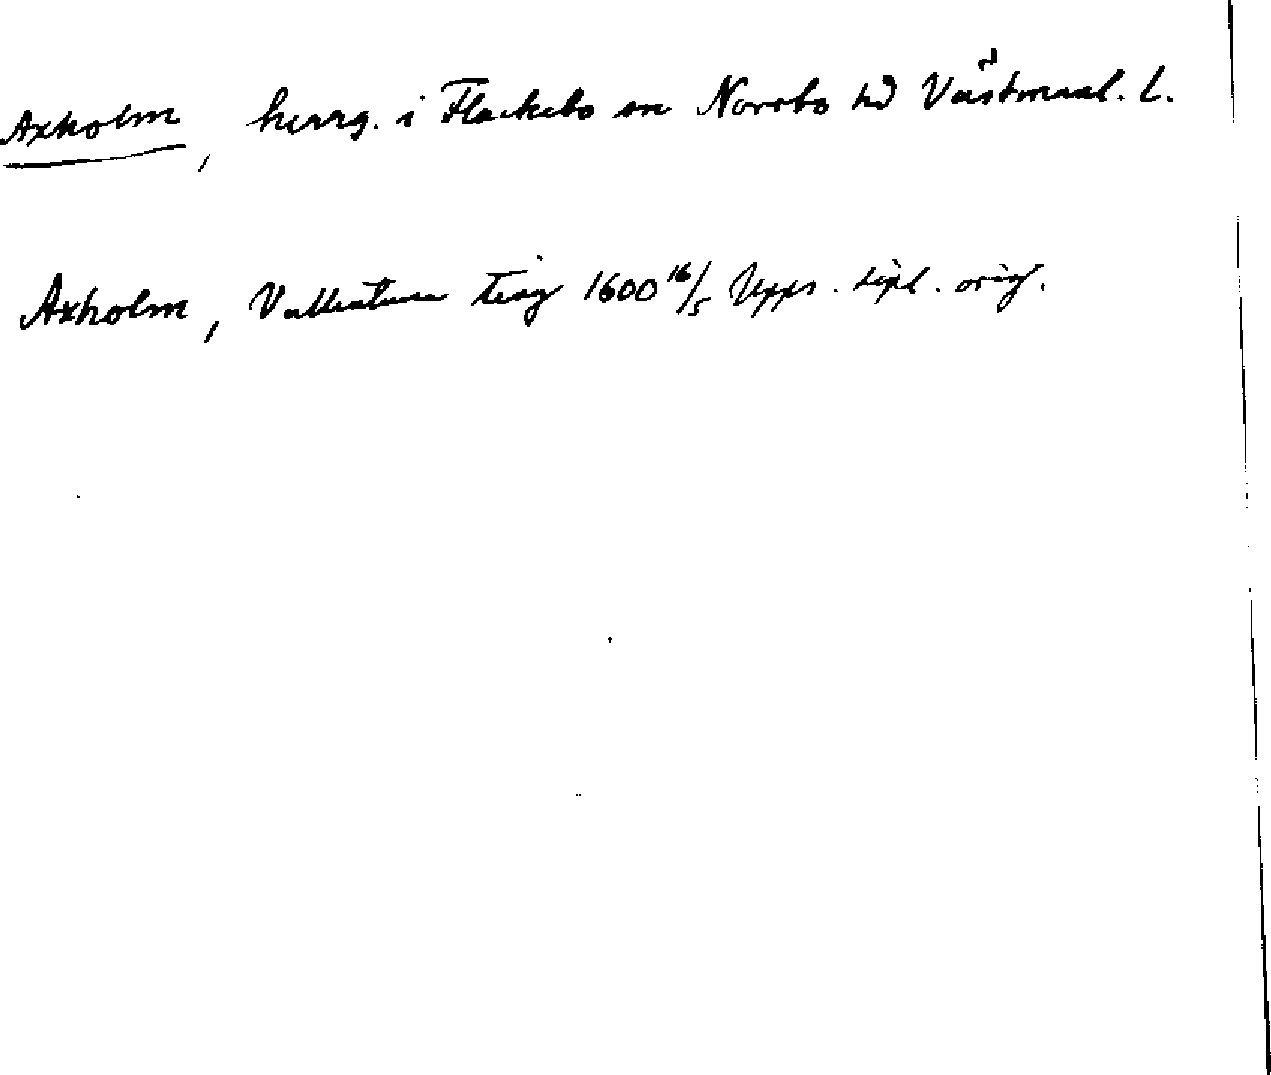 Axholm, herrg. i Fläckebo sn Norrbo hd Västmanl. l.
Axholm, Vallentuna ting 1600 16/5 Upps. dipl. orig.